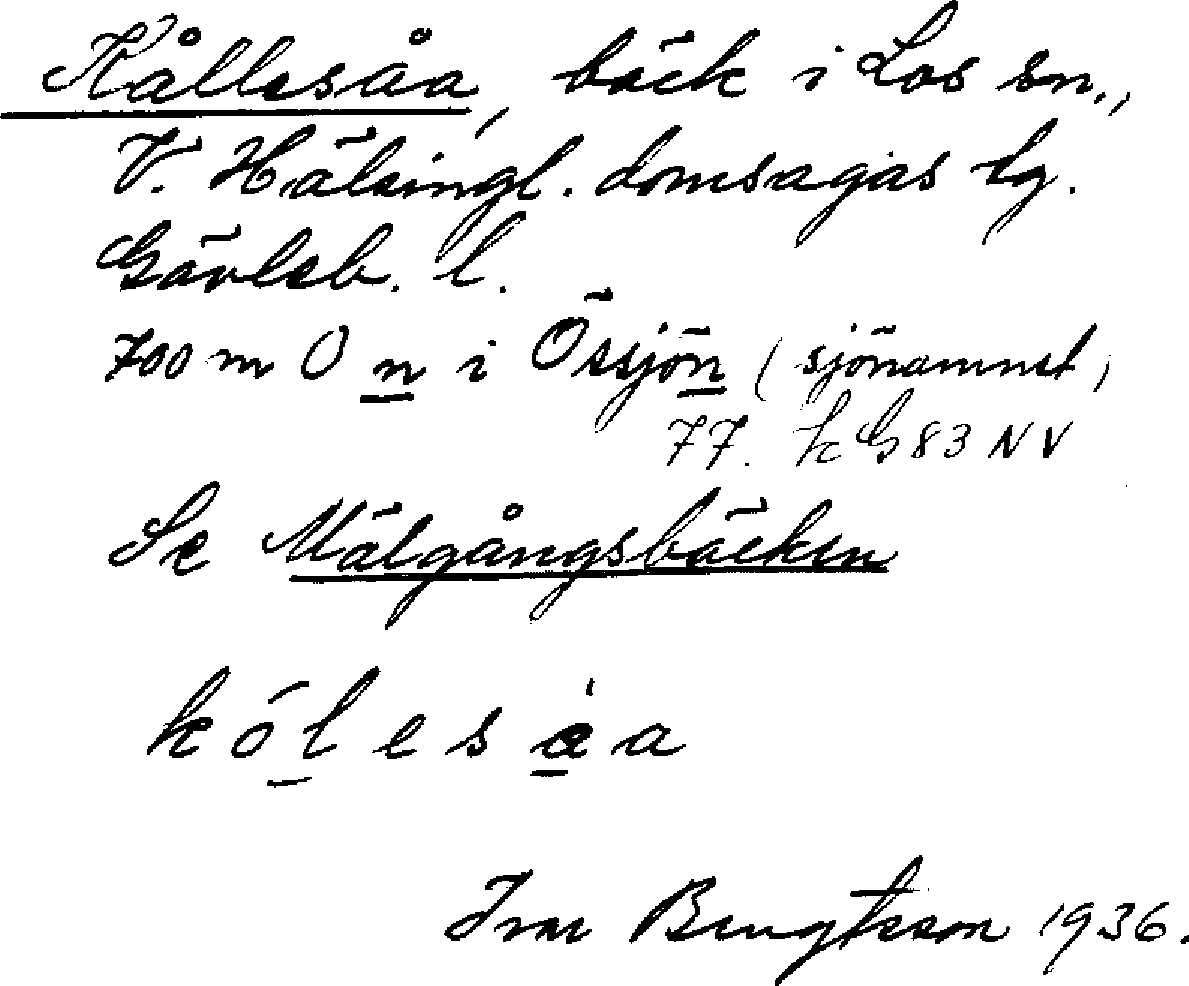 Kållesåa, bäck i Los sn.,
V. Hälsingl. domsagas tg.
Gävleb. l.
700 m O n i Össjön (sjönamnet)
77. k G83 NV
Se Mälgångsbäcken
kólesa
Ivar Bengtsson 1936.